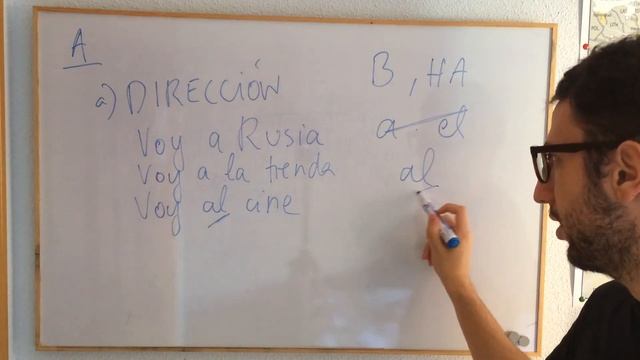 A
a) DIRECCIÓN
Voy a Rusia
Voy a la tienda
Voy al cine
В, НА
a el
al